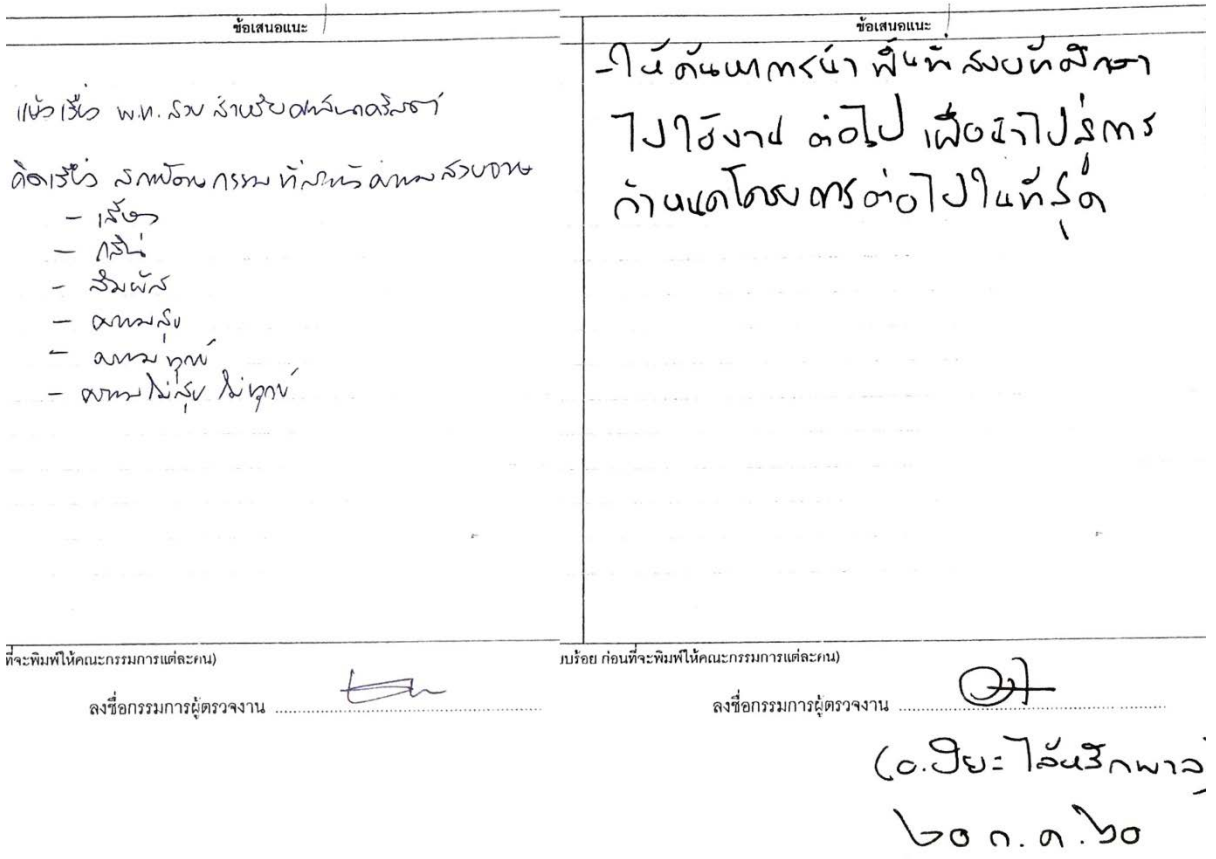 ข้อเสนอแนะ
แนวเรื่อง พ.ท. สงบ สำหรับศาสนาคริสต์
คิดเรื่อง สถาปัตยกรรม ที่สร้าง ความสงบจาก
- เสียง
- กลิ่น
- สัมผัส
- ความสุข
- ความทุกข์
- ความไม่สุข ไม่ทุกข์
ที่จะพิมพ์ให้คณะกรรมการแต่ละคน)
ลงชื่อกรรมการผู้ตรวจงาน
ข้อเสนอแนะ
- ให้ค้นหาการนำ พื้นที่ สงบที่ศึกษา
ไปใช้งาน ต่อไป เพื่อนำไปสู่การ
กำหนดโครงการต่อไปในที่สุด
บบร้อย ก่อนที่จะพิมพ์ให้คณะกรรมการแต่ละคน)
ลงชื่อกรรมการผู้ตรวจงาน
(อ.ปิยะ ไล้หลีกพาล)
๒๐ ก.ค. ๖๐